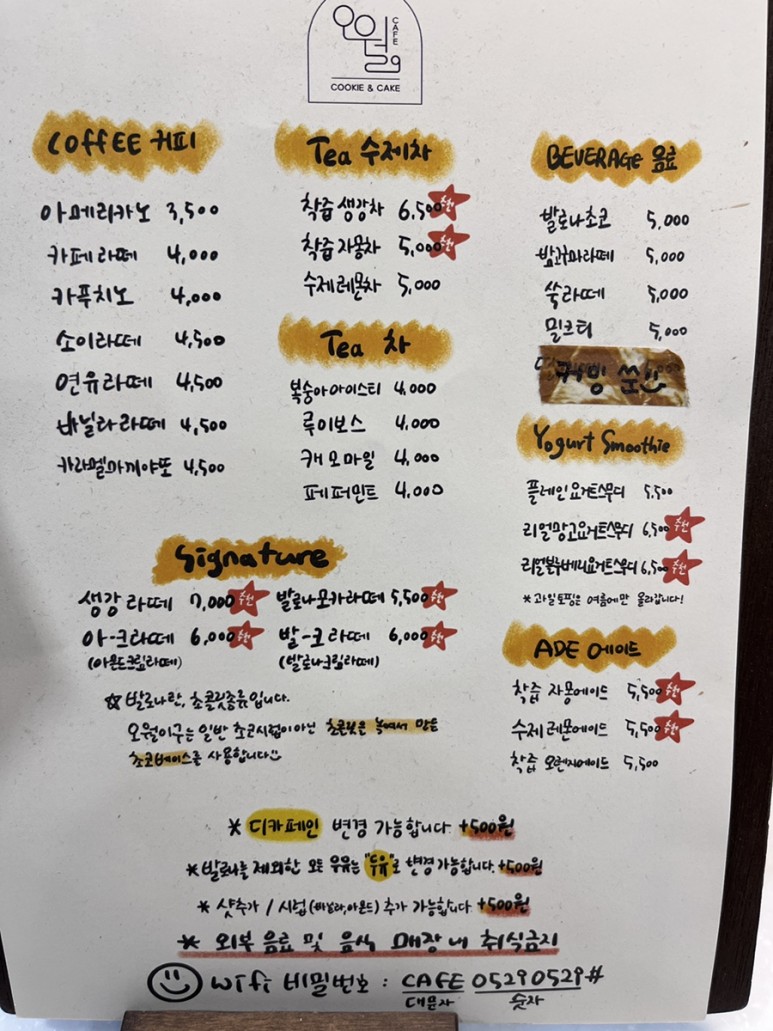 오월29 CAFE
COOKIE & CAKE
COffEE 커피
아메리카노 3,500
카페라떼 4,000
카푸치노 4,000
소이라떼 4,500
연유라떼 4,500
바닐라라떼 4,500
카라멜마끼야또 4,500
Tea 수제차
착즙 생강차 6,500 추천
착즙 자몽차 5,000 추천
수제레몬차 5,000
Tea 차
복숭아아이스티 4,000
루이보스 4,000
캐모마일 4,000
페퍼민트 4,000
BEVERAGE 음료
발로나초코 5,000
밤고구마라떼 5,000
쑥라떼 5,000
밀크티 5,000
커밍 쑨!!
Yogurt Smoothie
플레인요거트스무디 5,500
리얼망고요거트스무디 6,500 추천
리얼블루베리요거트스무디 6,500 추천
* 과일토핑은 여름에만 올라갑니다!
ADE 에이드
착즙 자몽에이드 5,500 추천
수제 레몬에이드 5,500 추천
착즙 오렌지에이드 5,500
Signature
생강라떼 7,000 추천 발로나모카라떼 5,500 추천
아-크라떼 6,000 추천 발-크라떼 6,000 추천
(아몬드크림라떼) (발로나크림라떼)
☆ 발로나란, 초콜릿종류입니다.
오월이구는 일반 초코시럽이아닌 초콜릿은 녹여서 만든
초코베이스를 사용합니다
* 디카페인 변경 가능합니다. +500원
* 발로나를 제외한 모든 우유는 "두유"로 변경가능합니다. +500원
* 샷추가 / 시럽 (바닐라, 아몬드) 추가 가능합니다. +500원
* 외부 음료 및 음식 매장 내 취식금지
wifi 비밀번호 : CAFE 05290529#
대문자 숫자